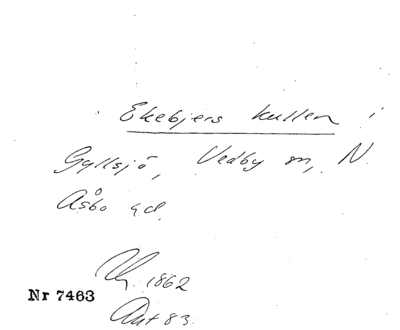 Ekebjers kullen i
Gyllsjö, Vedby sn, N.
Åsbo hd.
1862
Nr 7463
Ant 83.